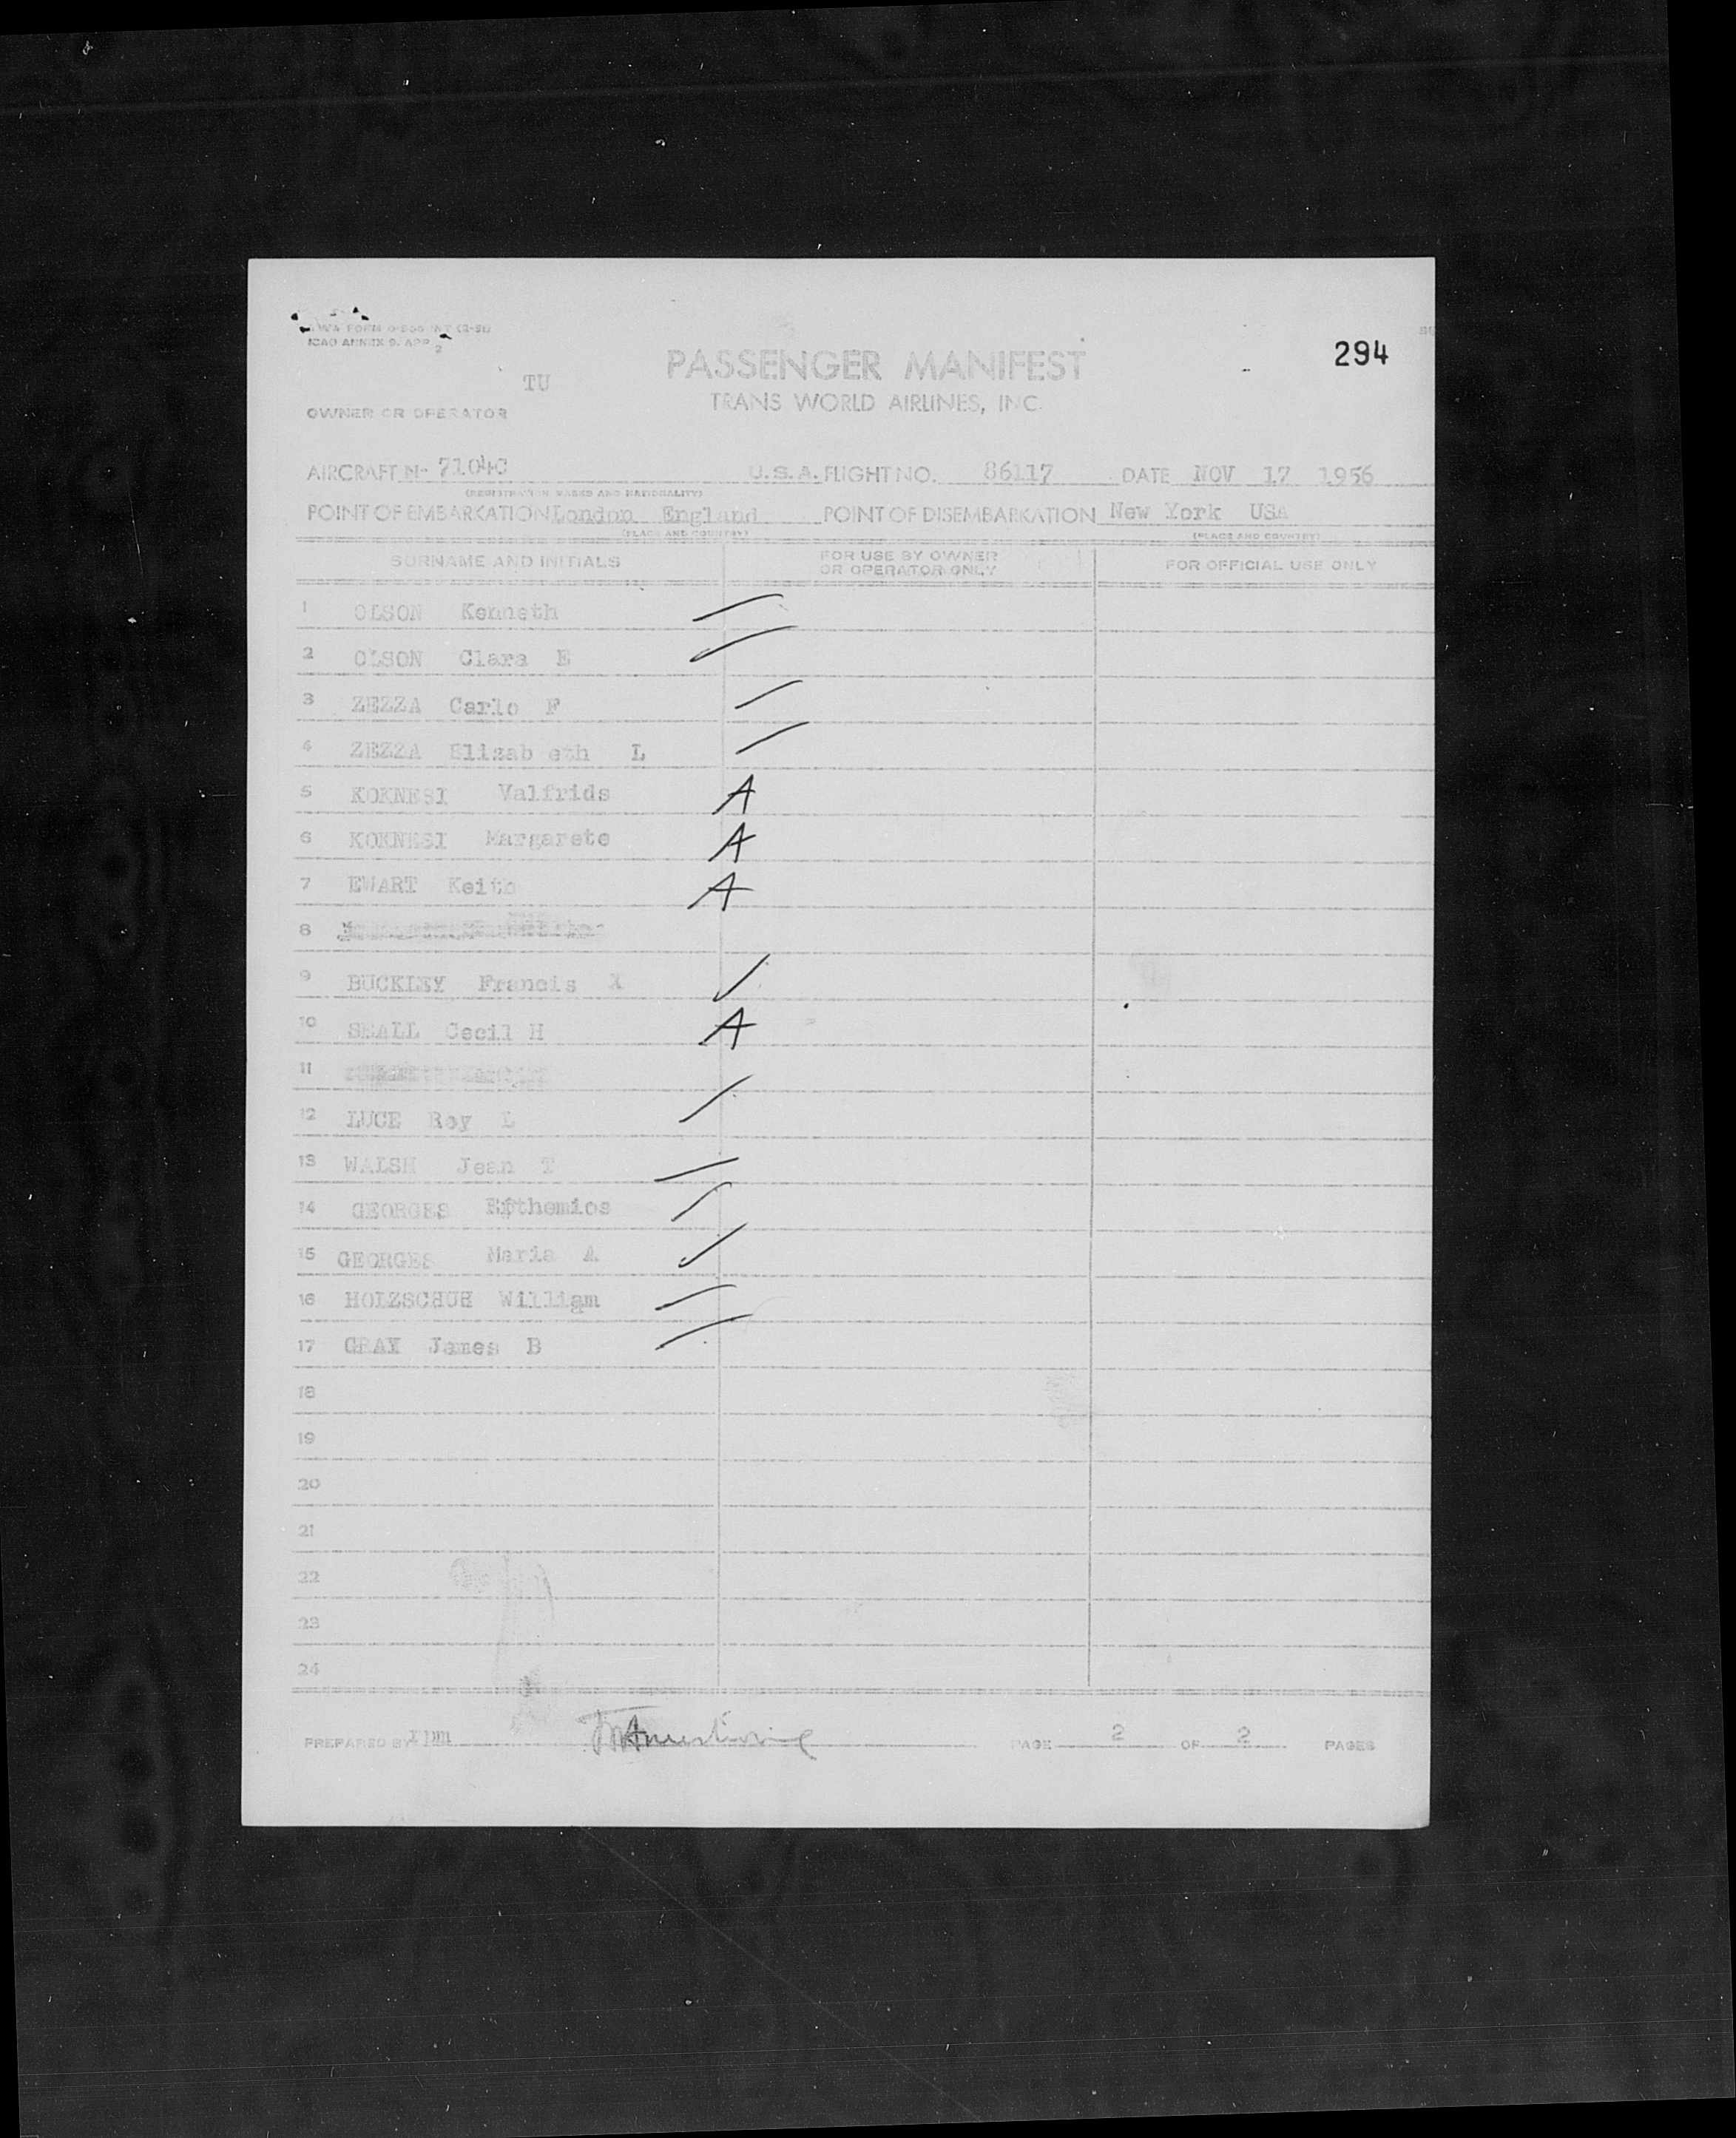 TWA FORM
ICAO ANNEX 9, APP 2
294
PASSENGER MANIFEST
TU
TRANS WORLD AIRLINES, INC.
OWNER OR OPERATOR
AIRCRAFT N- 7104C U.S.A. FLIGHT NO. 86117 DATE NOV 17 1956
(REGISTRATION MARKS AND NATIONALITY)
POINT OF EMBARKATION London England POINT OF DISEMBARKATION New York USA
(PLACE AND COUNTRY) (PLACE AND COUNTRY)
SURNAME AND INITIALS FOR USE BY OWNER OR OPERATOR ONLY FOR OFFICIAL USE ONLY
1 OLSON Kenneth
2 OLSON Clara E
3 ZEZZA Carlo F
4 ZEZZA Elizab eth L
5 KOKNESI Valfrids A
6 KOKNESI Margarete A
7 EWART Keith A
8
9 BUCKLEY Francis X
10 SMALL Cecil H A
11
12 LUCE Roy L
13 WALSH Jean T
14 GEORGES Efthemios
15 GEORGES Maria A
16 HOLZSCHUH William
17 GRAY James B
18
19
20
21
22
23
24
PREPARED BY PAGE 2 OF 2 PAGES